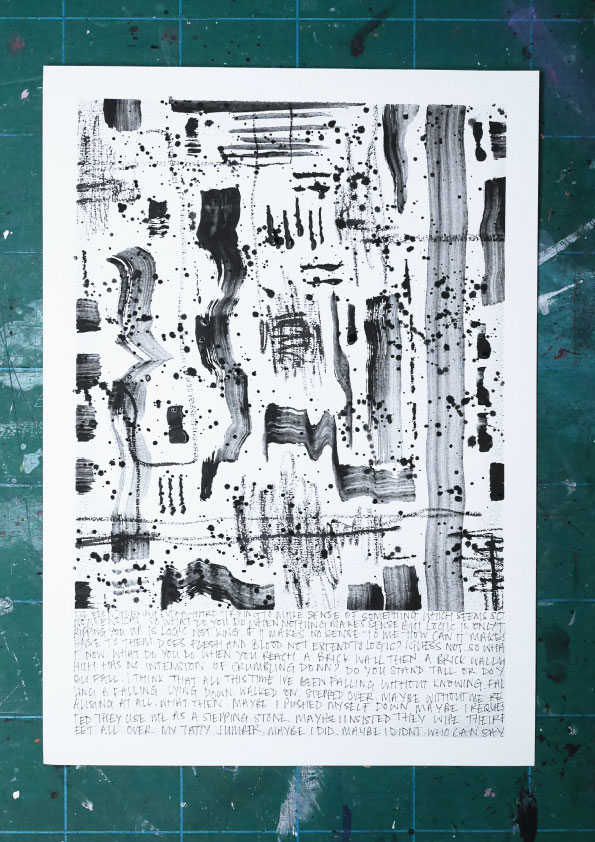 TRYING TO MAKE SENSE OF SOMETHING WHICH SEEMS SO
NONSENSICAL. SO WHAT DO YOU DO WHEN NOTHING MAKES SENSE BUT LOGIC IS ONLY T
RIPPING YOU UP. IS LOGIC NOT KING IF IT MAKES NO SENSE TO ME HOW CAN IT MAKE S
ENSE TO THEM DOES FLESH AND BLOOD NOT EXTEND TO LOGIC? I GUESS NOT. SO WHA
T NOW. WHAT DO YOU DO WHEN YOU REACH A BRICK WALL THEN A BRICK WALL W
HICH HAS NO INTENSION OF CRUMBLING DOWN? DO YOU STAND TALL OR DO Y
OU FALL. I THINK THAT ALL THIS TIME I'VE BEEN FALLING WITHOUT KNOWING. FAL
LING & FALLING. LYING DOWN. WALKED ON. STEPPED OVER. MAYBE WITHOUT ME RE
ALISING AT ALL. WHAT THEN. MAYBE I PUSHED MYSELF DOWN. MAYBE I REQUES
TED THEY USE ME AS A STEPPING STONE. MAYBE I INSISTED THEY WIPE THEIR F
EET ALL OVER MY TATTY JUMPER. MAYBE I DID. MAYBE I DIDNT. WHO CAN SAY.